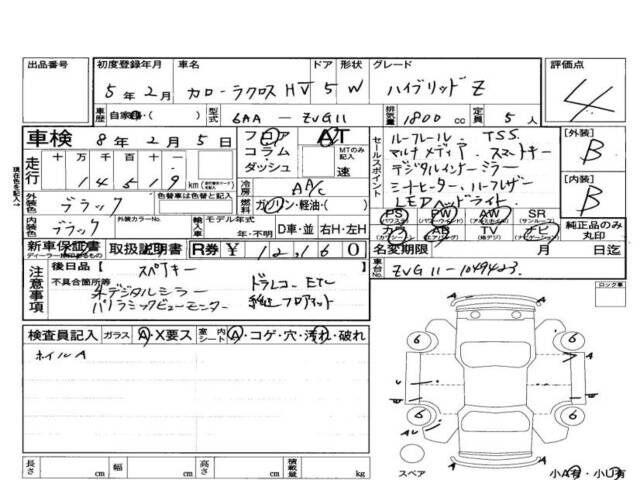 出品番号 初度登録年月 車名 ドア 形状 グレード 評価点
5年2月 カローラクロス HV 5 W ハイブリッド Z 4
車歴 自家 ( ) 型式 6AA - ZVG11 排気量 1800 cc 定員 5 人
車検 8年 2月 5日 フロア AT
コラム MTのみ記入
ダッシュ 速
走行 十 万 千 百 十 一
1 4 5 1 9 km
冷房 AA/C
燃料 ガソリン・軽油・( )
セールスポイント
ルーフレール. TSS.
マルチメディア. スマートキー
デジタルインナーミラー
シートヒーター. ハーフレザー
LEDヘッドライト
[外装] B
[内装] B
外装色 ブラック 色替車は色替と記入
内装色 ブラック 外装カラーNo. 輸入車 モデル年式 年・不明 D車・並 右H・左H
PS PW AW SR
(パワステ) (パワーウインド) (アルミホイル) (サンルーフ)
カワ AB TV ナビ
(エアバッグ) (ナビゲーション)
純正品のみ丸印
現在色を記入
新車保証書 取扱説明書 R券 ¥ 12,160
名変期限 月 日迄
車台No. ZVG11-1049423
注意事項
後日品 [ スペアキー ]
不具合箇所等
デジタルミラー
パノラミックビューモニター
ドラレコ. ETC
純正フロアマット
ロック車
検査員記入 ガラス A・X要ス 室内シート A・コゲ・穴・汚れ・破れ
ホイルA
6 6
6 6
A A
A A
U
スペア
小A有・小U有
長さ cm 幅 cm 高さ cm 積載量 kg